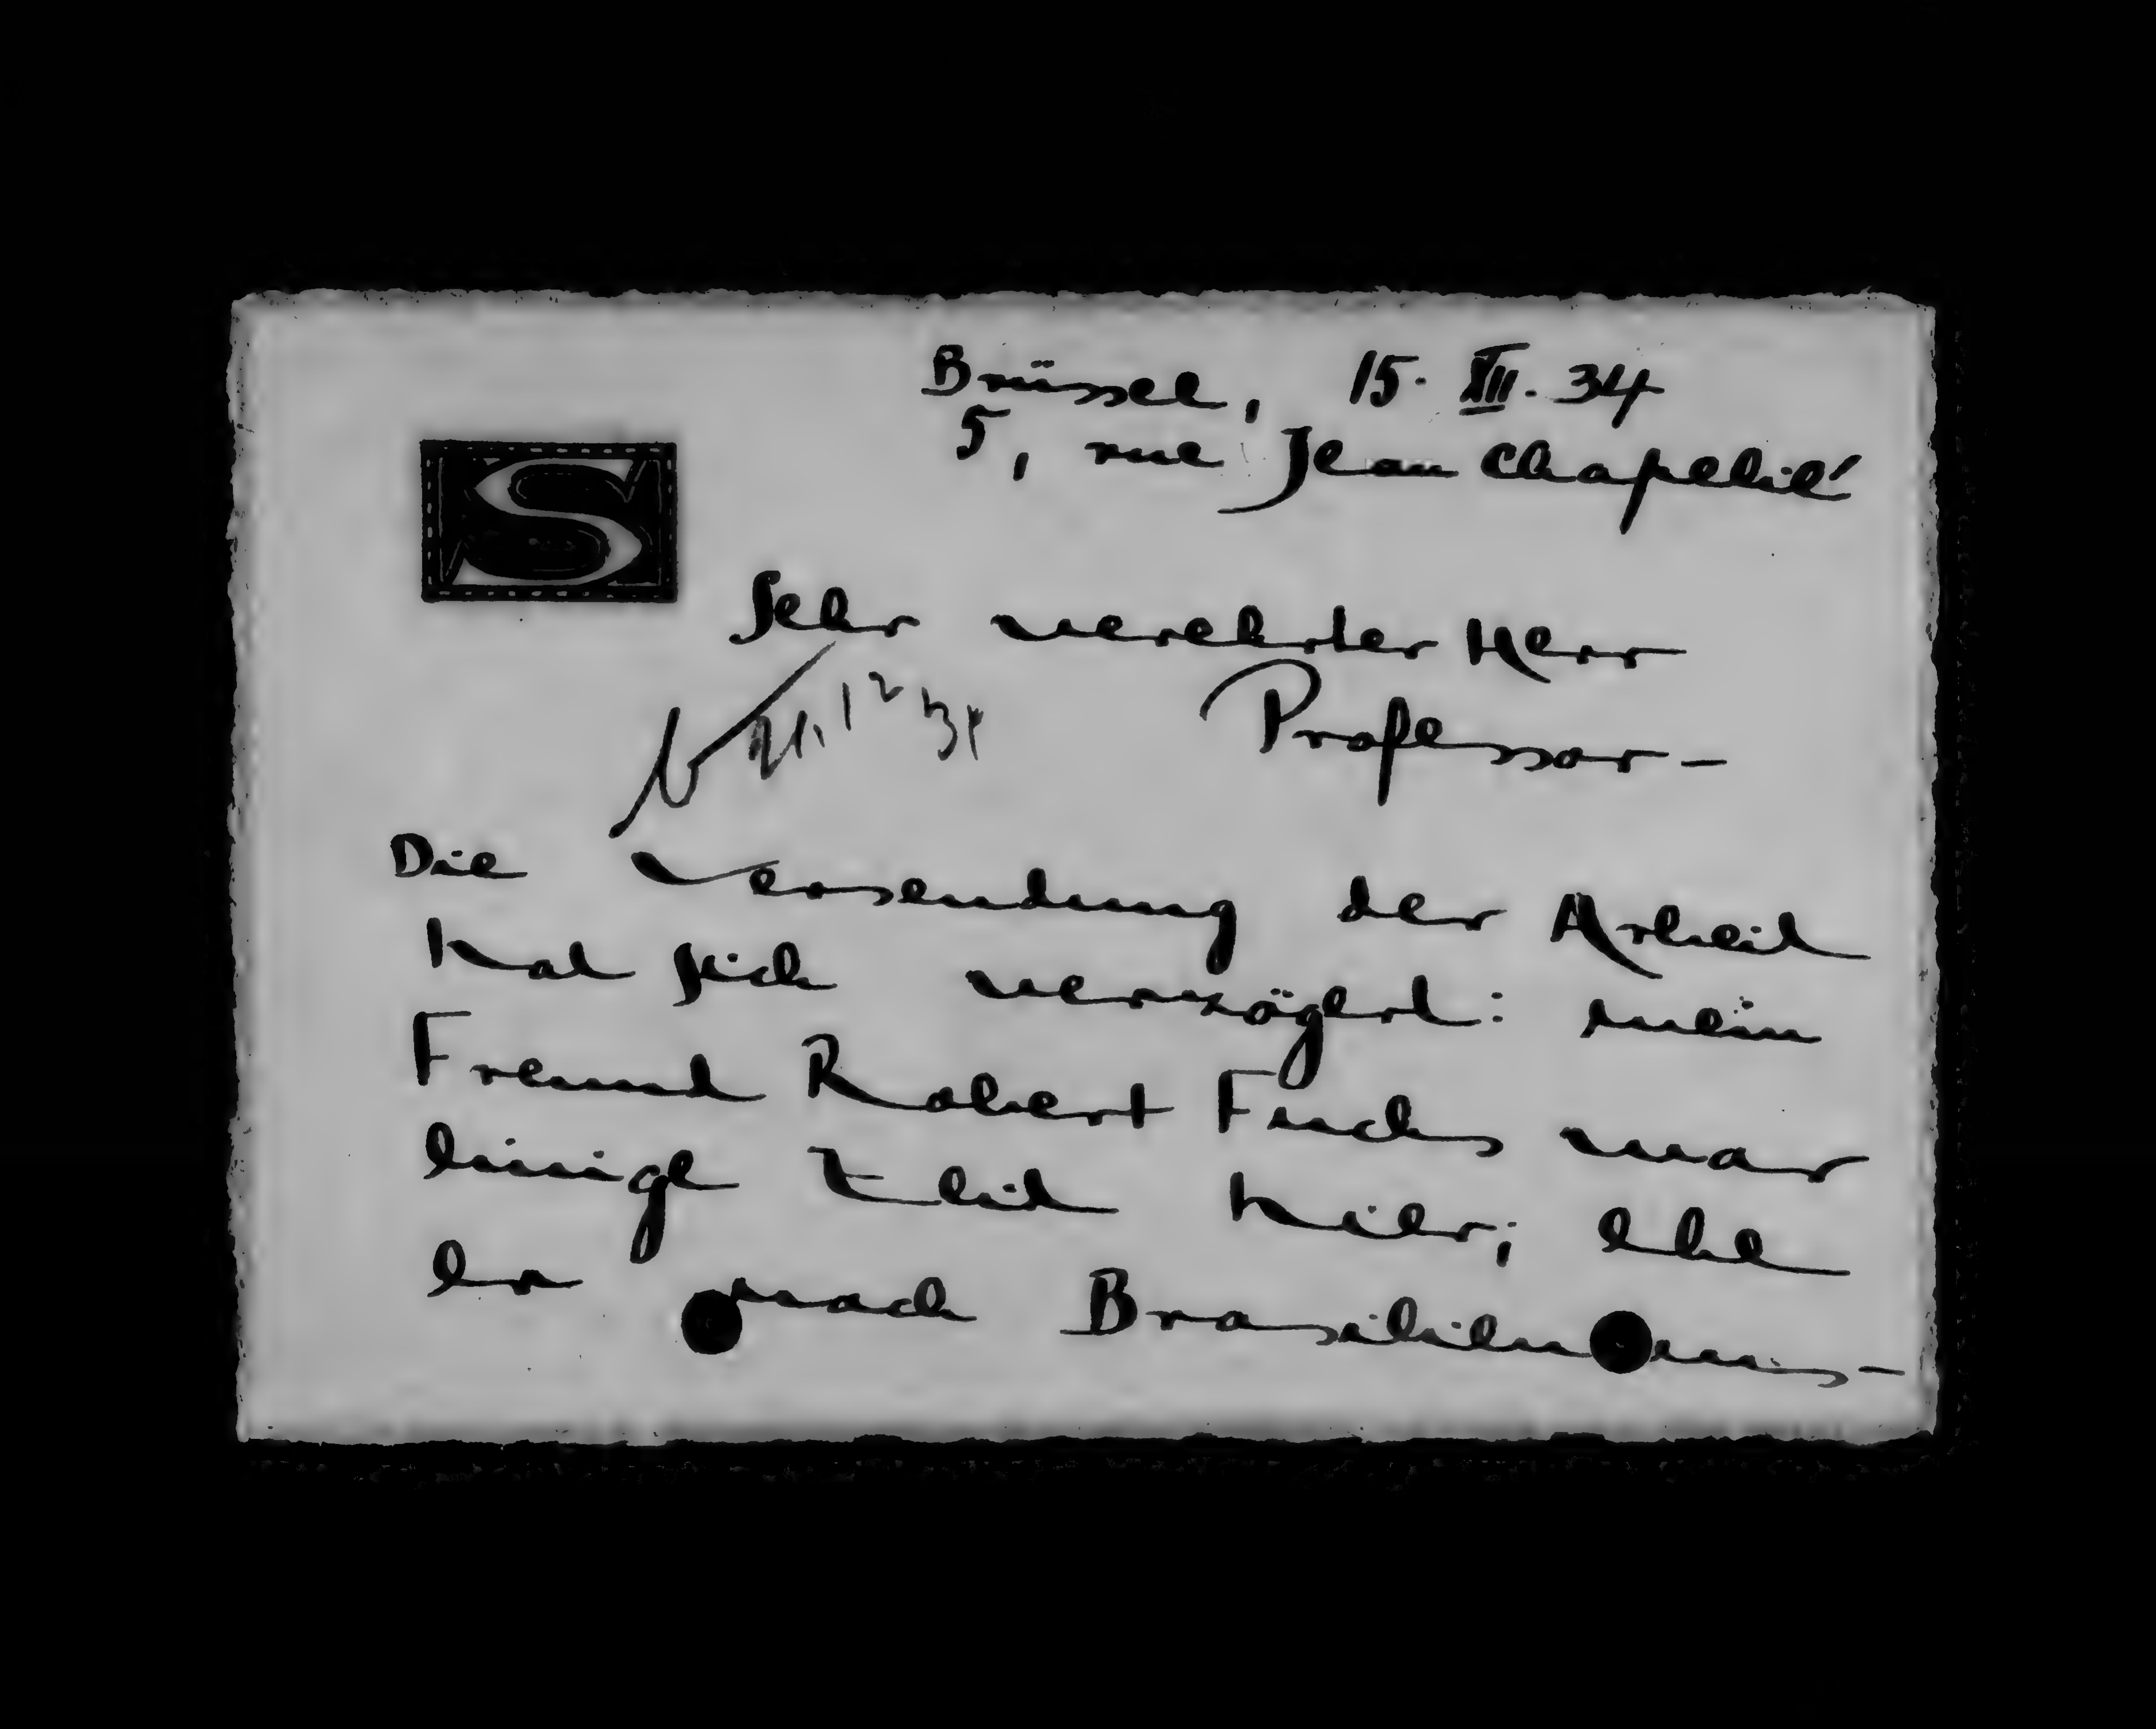 Brüssel, 15. XII. 34
5, rue Jean Chapelié
S
Sehr verehrter Herr
Professor –
21.12 34
Die Versendung der Arbeit
hat sich verzögert: mein
Freund Robert Fuchs war
einige Zeit hier, ehe
er nach Brasilien aus-